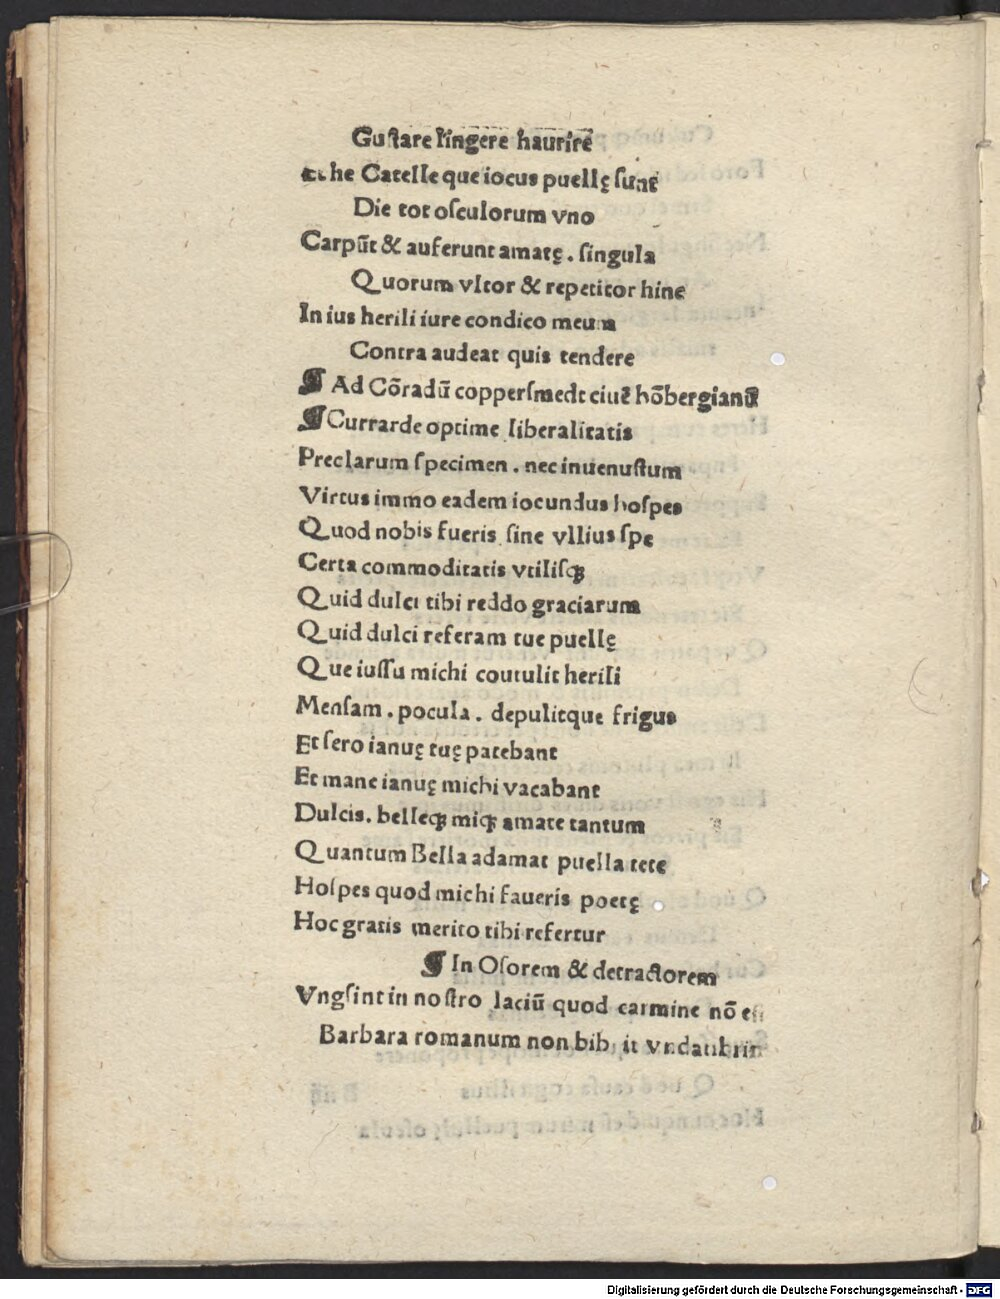 Guſtare lingere haurire
Et he Catelle que iocus puellę ſunt
Die tot oſculorum vno
Carpūt & auferunt amatę . ſingula
Quorum vltor & repetitor hinc
In ius herili iure condico meum
Contra audeat quis tendere
¶ Ad Cōradū copperſmedt ciuē hōbergianū
¶ Currarde optime liberalitatis
Preclarum ſpecimen . nec inuenuſtum
Virtus immo eadem iocundus hoſpes
Quod nobis fueris ſine vllius ſpe
Certa commoditatis vtiliſqꝫ
Quid dulci tibi reddo graciarum
Quid dulci referam tue puellę
Que iuſſu michi coutulit herili
Menſam . pocula . depulitque frigus
Et ſero ianuę tuę patebant
Et mane ianuę michi vacabant
Dulcis . belleqꝫ miqꝫ amate tantum
Quantum Bella adamat puella tete
Hoſpes quod michi faueris poetę
Hoc gratis merito tibi refertur
¶ In Oſorem & detractorem
Vngſint in noſtro laciū quod carmine nō eſt
Barbara romanum non bib it vnda
Digitalisierung gefördert durch die Deutsche Forschungsgemeinschaft - DFG